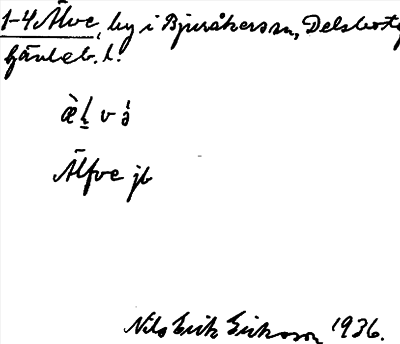 1-4 Älve, by i Bjuråkers sn, Delsbo tg
Gävleb. l.
Älfve jb
Nils Erik Eriksson 1936.